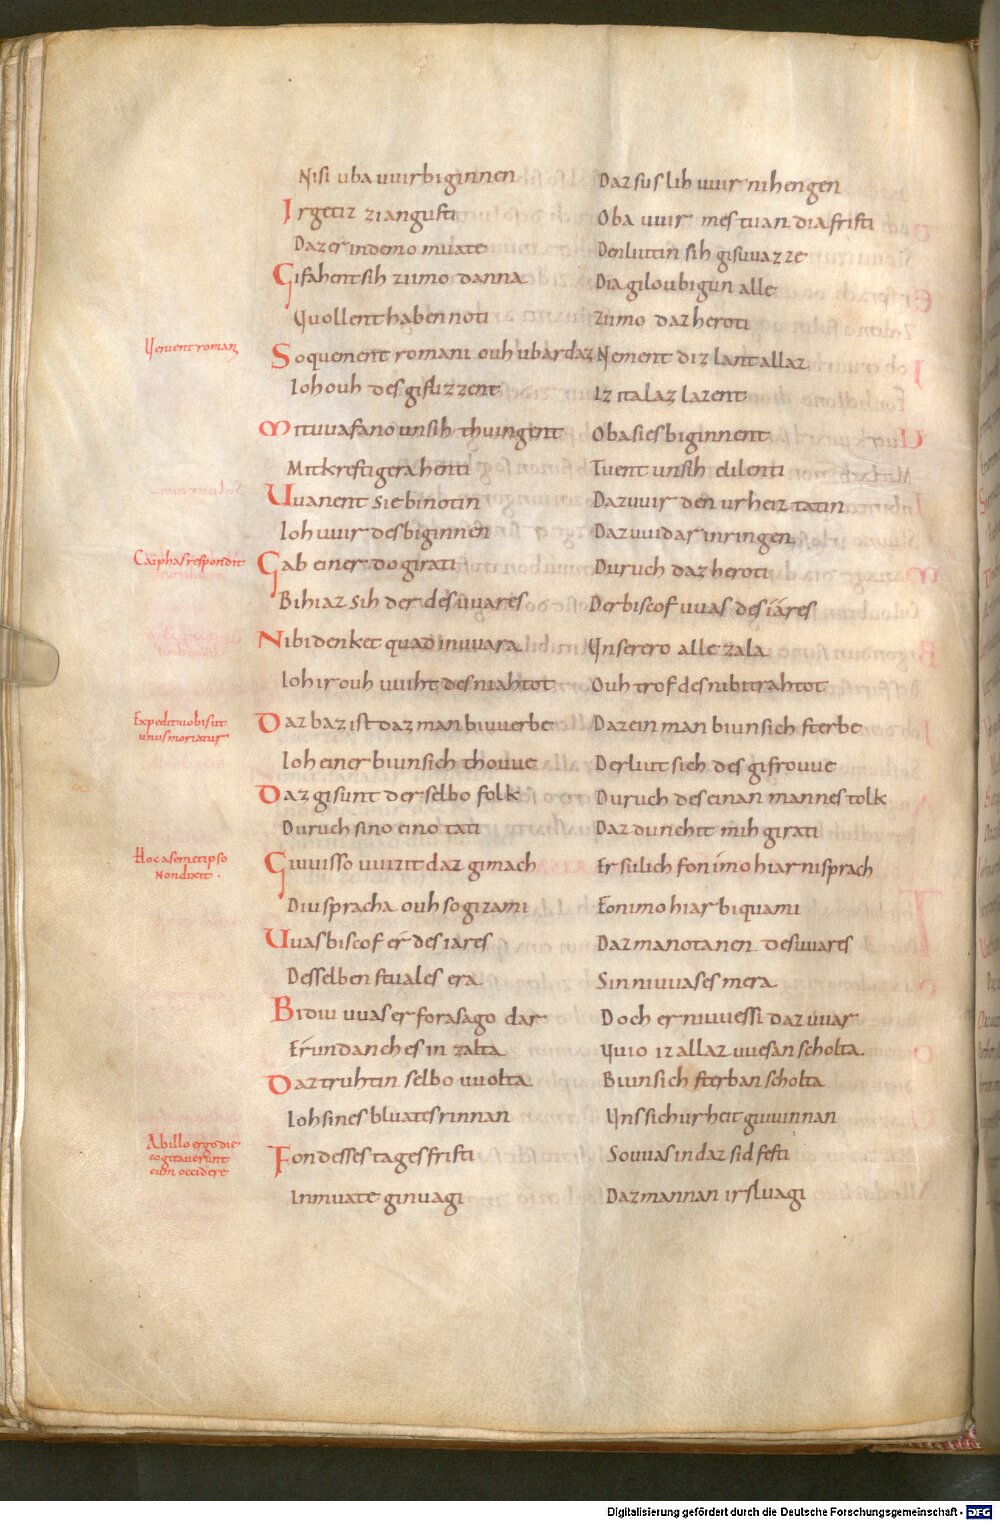 Nisi uba uuir biginnen Daz suslih uuir nihengen
Irgetiz zi angusti Oba uuir mes tuan dia fristi
Daz er in demo muate Den liutin sih gisuuazze
Gifahent sih zi imo danna Dia giloubigun alle
Uuollent haben noti zi imo daz heroti
Uenient romani
So quenent romani ouh ubar daz Nement diz lant allaz
Ioh ouh des giflizzent Iz italaz lazent
Mit uuafano unsih thuingent Oba sies biginnent
Mit kreftigera henti Tuent unsih elilenti
Uuanent sie bi notin Daz uuir den urheiz tatin
Ioh uuir des biginnen Daz uuidar in ringen
Caiphas respondit
Gab einer do girati Duruch daz heroti
Bihiaz sih der des uuares Der biscof uuas des iares
Nibidenket quad in uuara Unserero alle zala
Ioh ir ouh uuiht des niahtot Ouh trof des nibitrahtot
Expedit uobis ut
unus moriatur
Daz baz ist daz man biuuerbe Daz ein man bi unsich sterbe
Ioh einer bi unsich thouue Der liut sich des gifrouue
Daz gisunt der selbo folk Duruch des einan mannes tolk
Duruch sino eino tati Daz dunchit mih girati
Hoc a semetipso
Non dixit .
Giuuisso uuizit daz gimach Er sulich fon imo hiar nisprach
Diu spracha ouh so gizami Fon imo hiar biquami
Uuas biscof er des iares Daz man otanen des uuares
Des selben stuales era Sin niuuas es mera
Bidiu uuas er forasago dar Doch er niuuessi daz uuar
Er undanches in zalta Uuio iz allaz uuesan scholta
Daz truhtin selbo uuolta Bi unsich sterban scholta
Ioh sines bluates rinnan Uns sichurheit giuuinnan
Ab illo ergo die
cogitauerunt
eum occidere
Fon desses tages fristi So uuas in daz sid festi
In muate ginuagi Daz man nan irsluagi
Digitalisierung gefördert durch die Deutsche Forschungsgemeinschaft - DFG